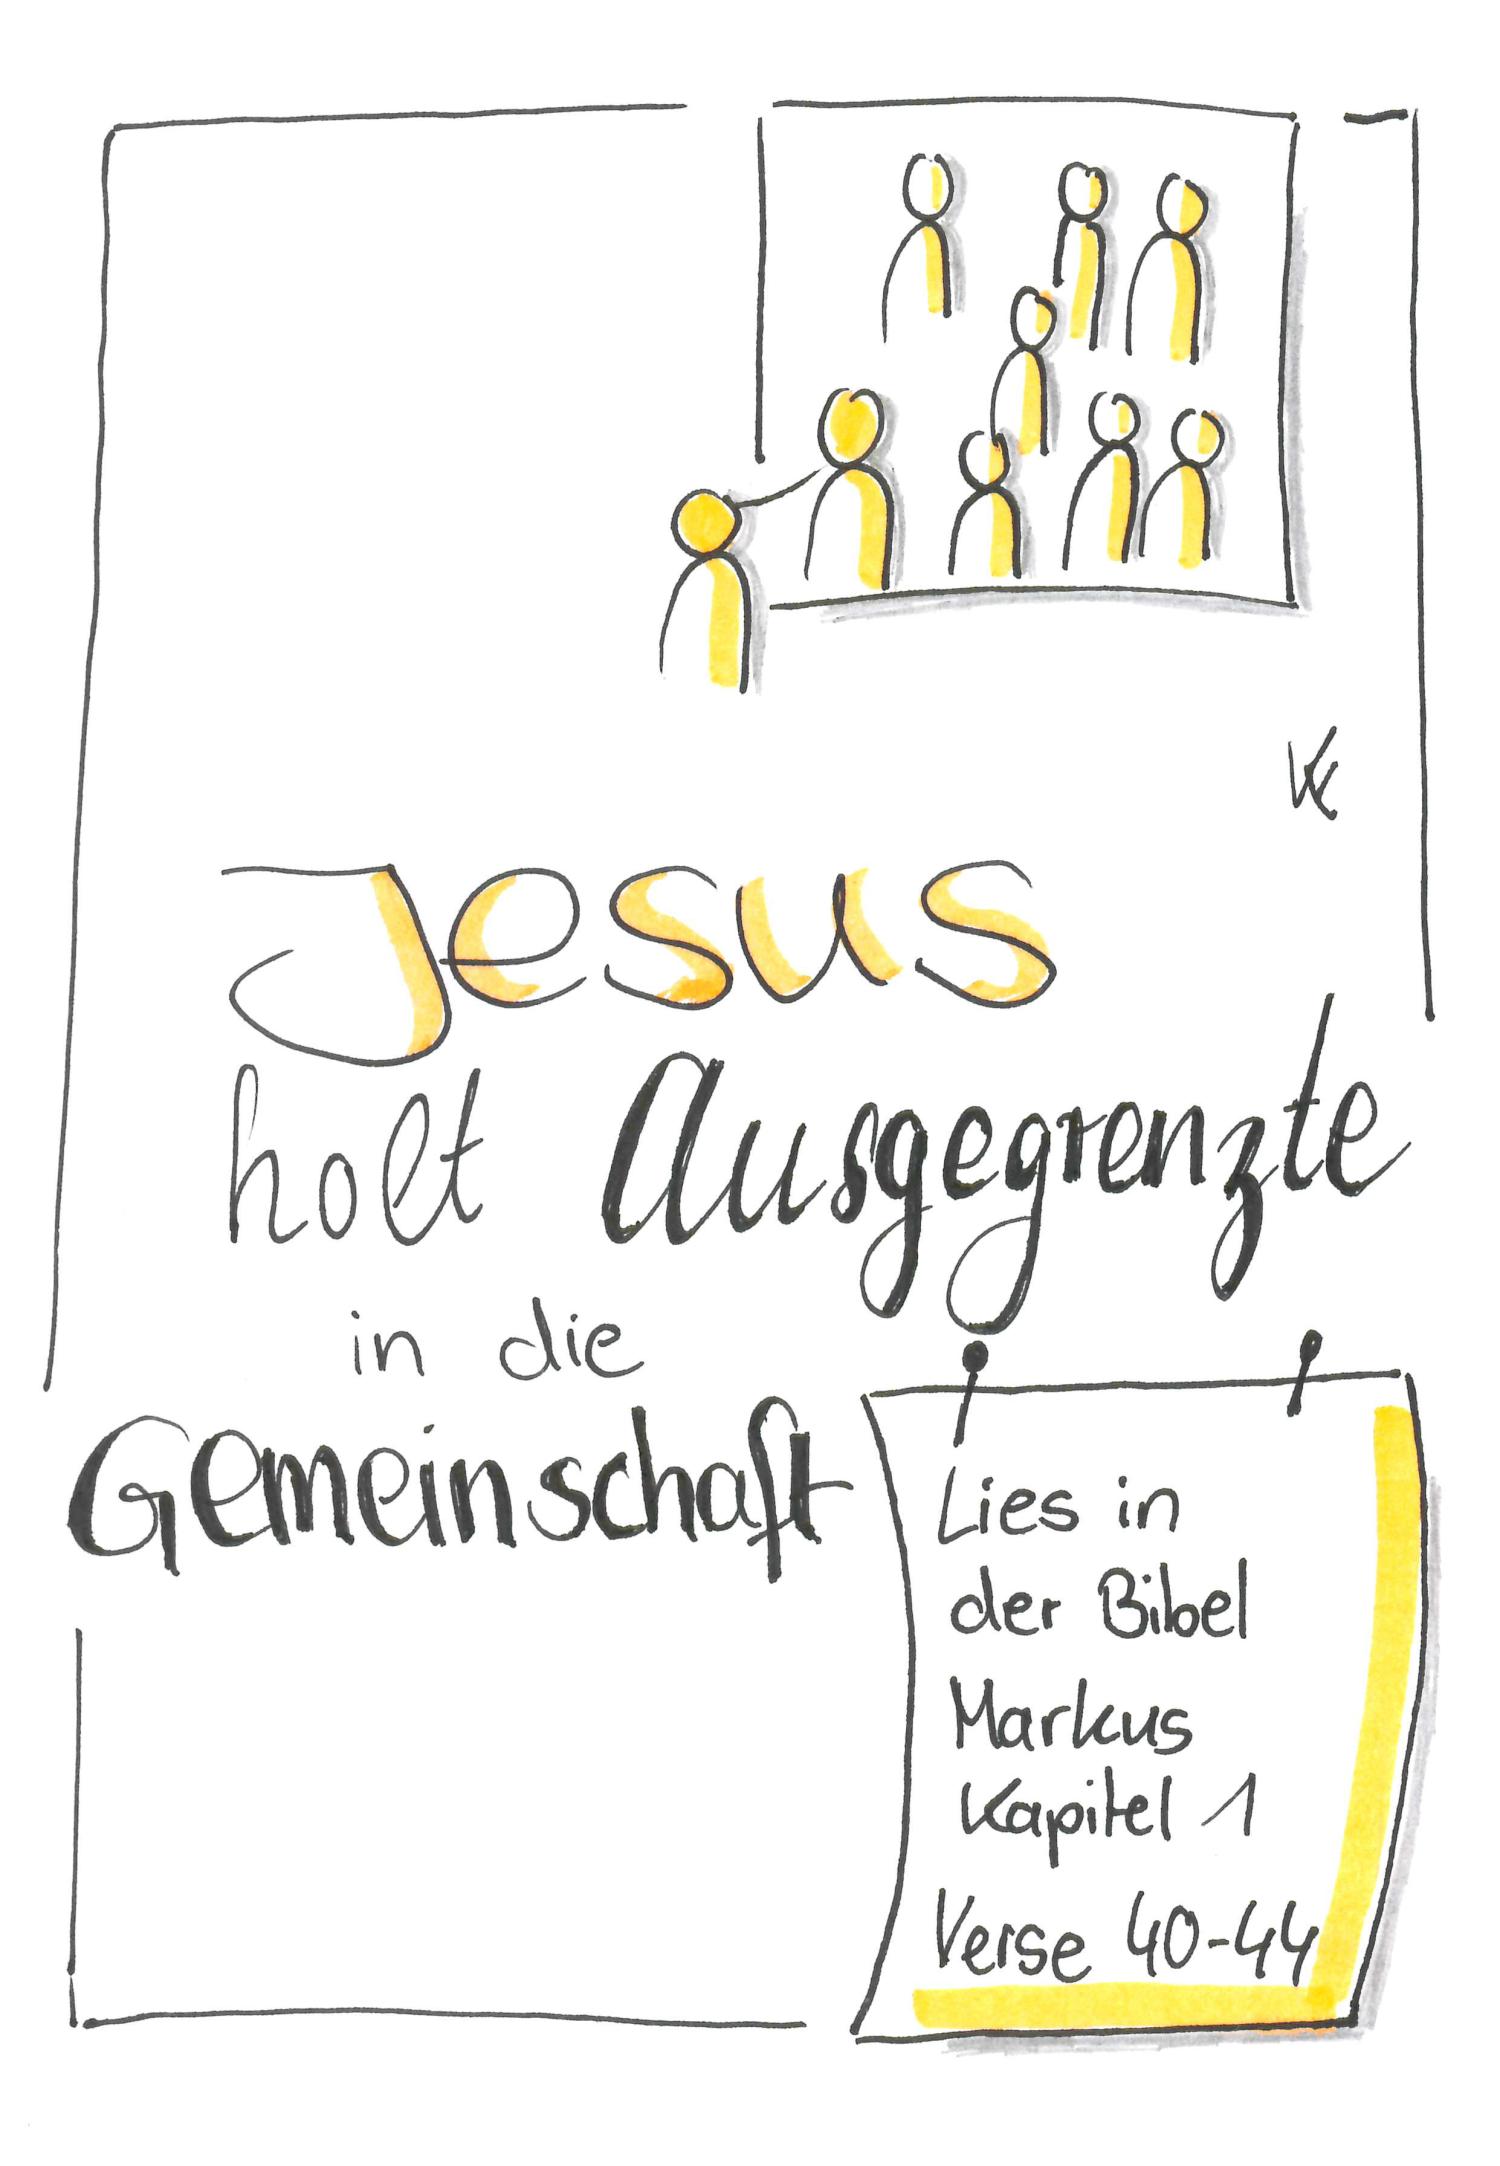 Jesus
holt Ausgegrenzte
in die
Gemeinschaft
Lies in
der Bibel
Markus
Kapitel 1
Verse 40-44